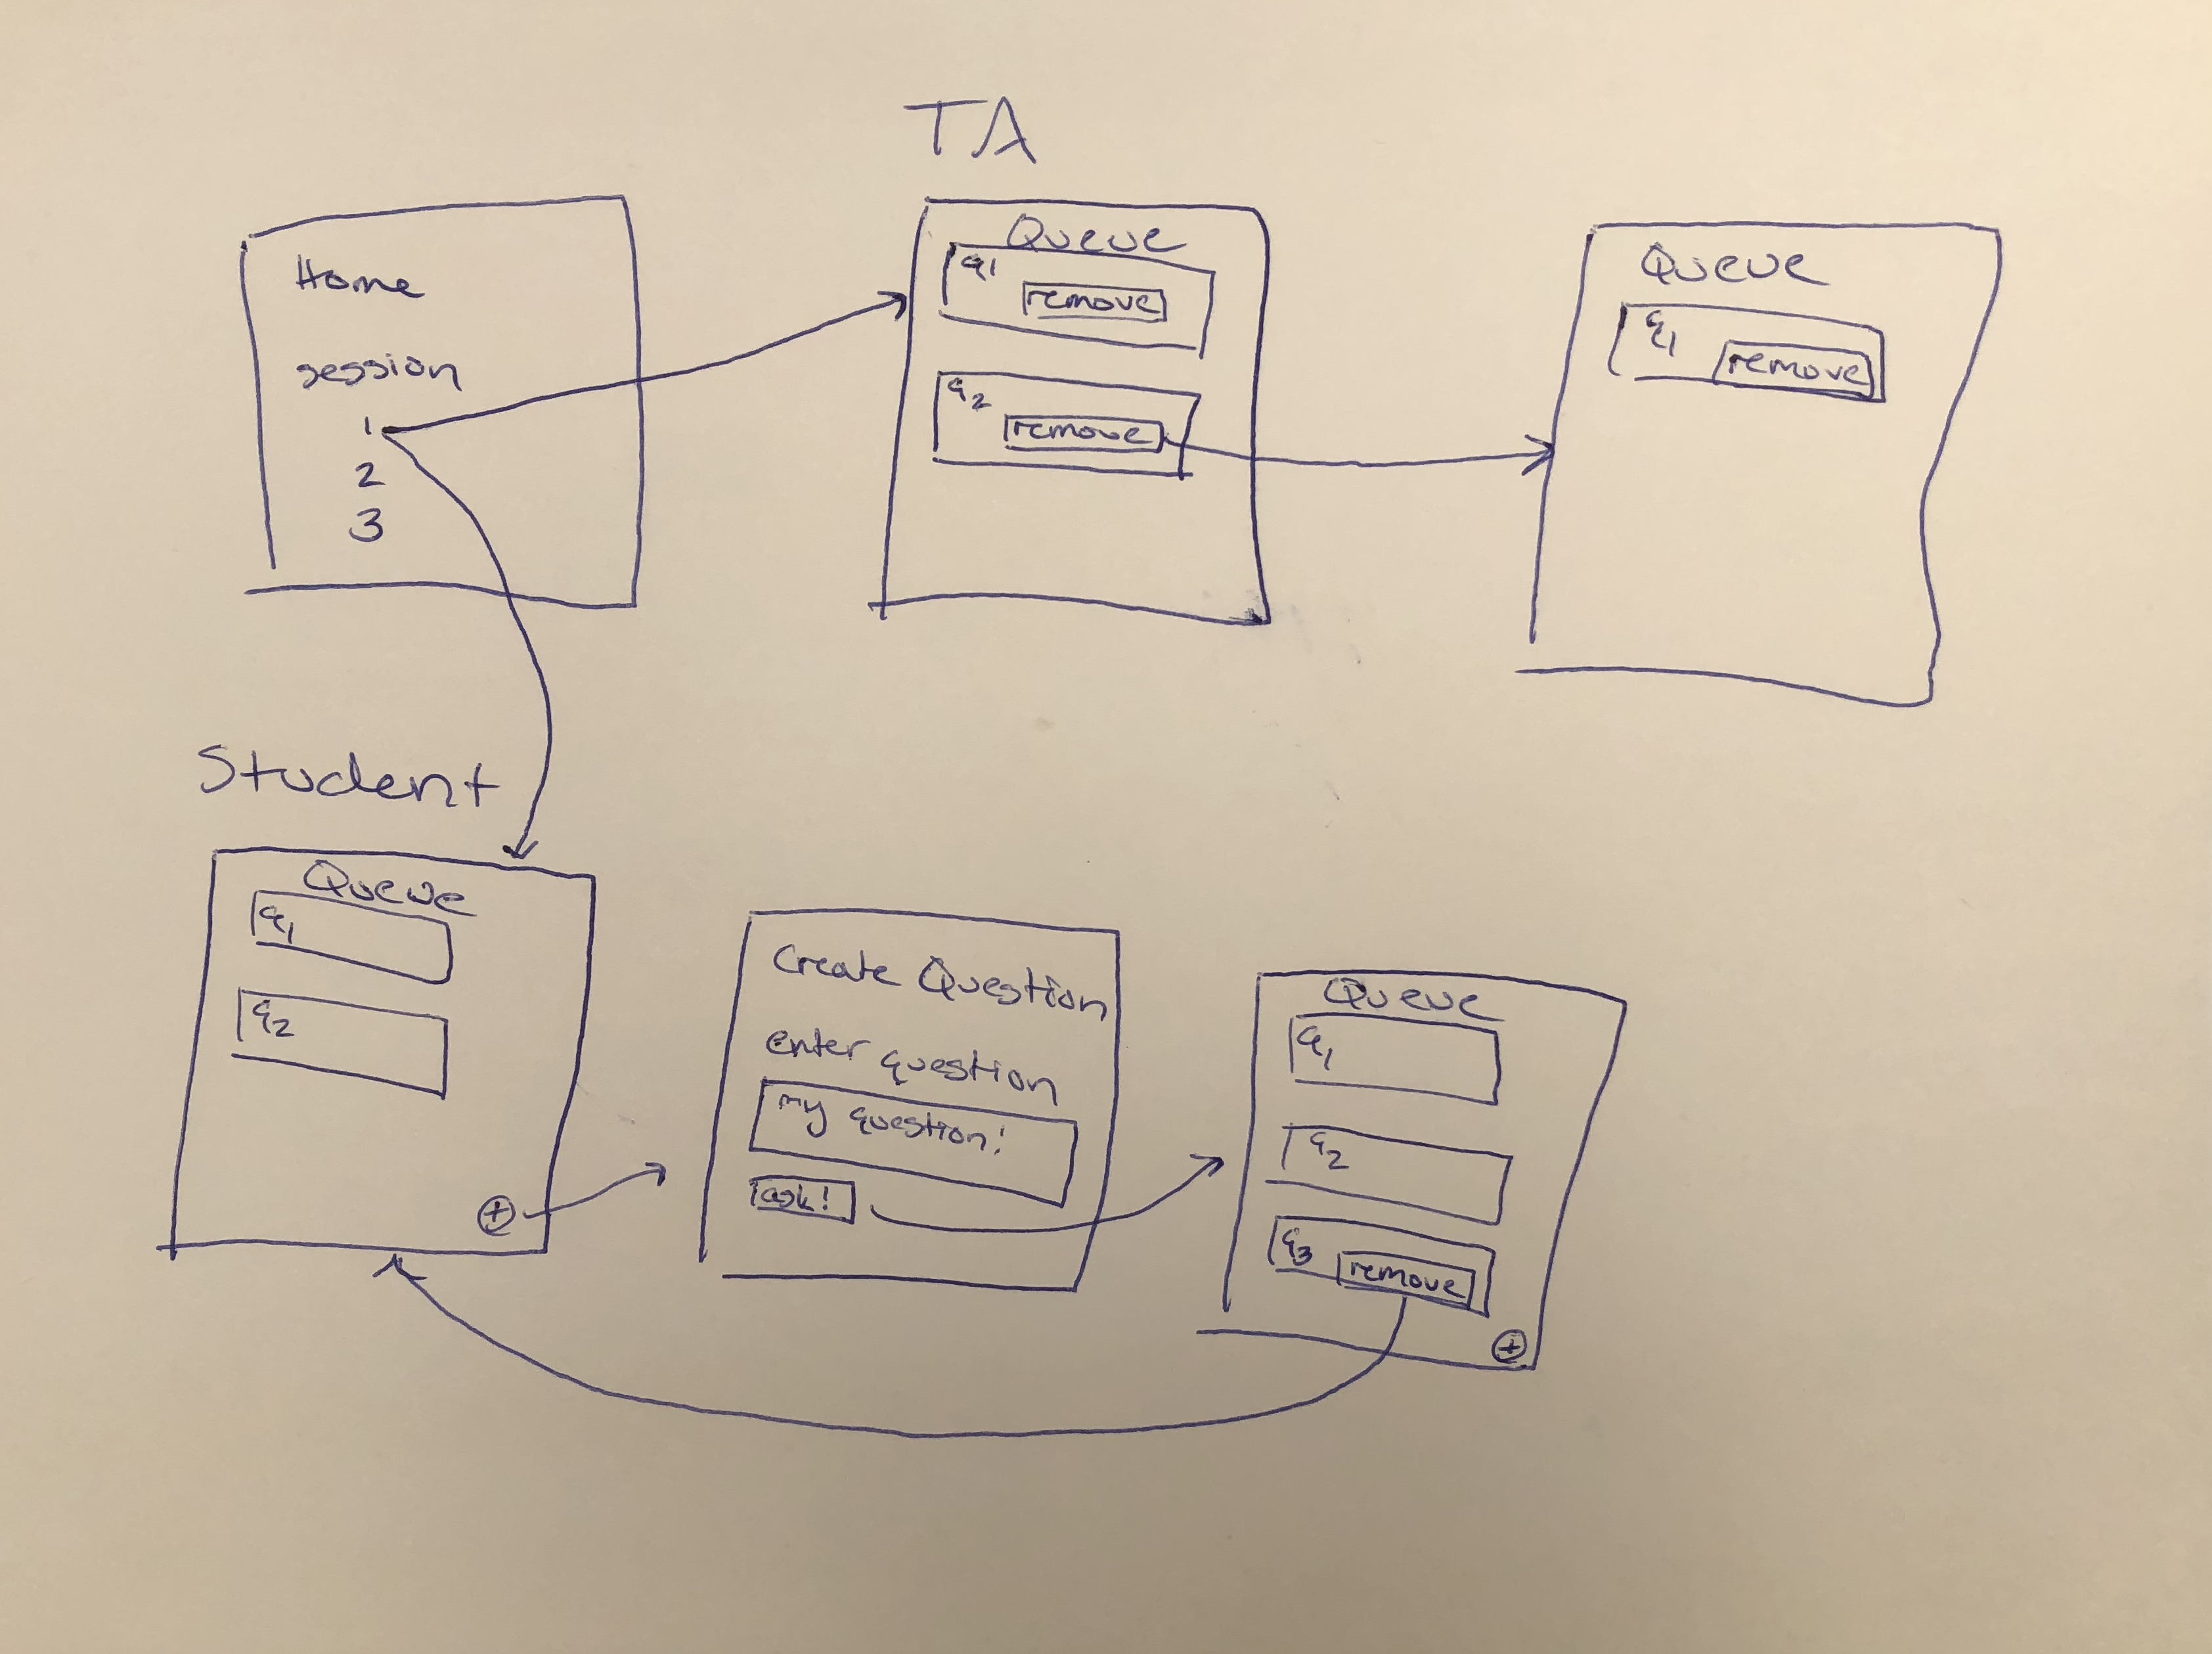 TA
Home
session
1
2
3
Queue
q1
remove
q2
remove
Queue
q1
remove
Student
Queue
q1
q2
+
Create Question
enter question
my question!
ask!
Queue
q1
q2
q3 remove
+